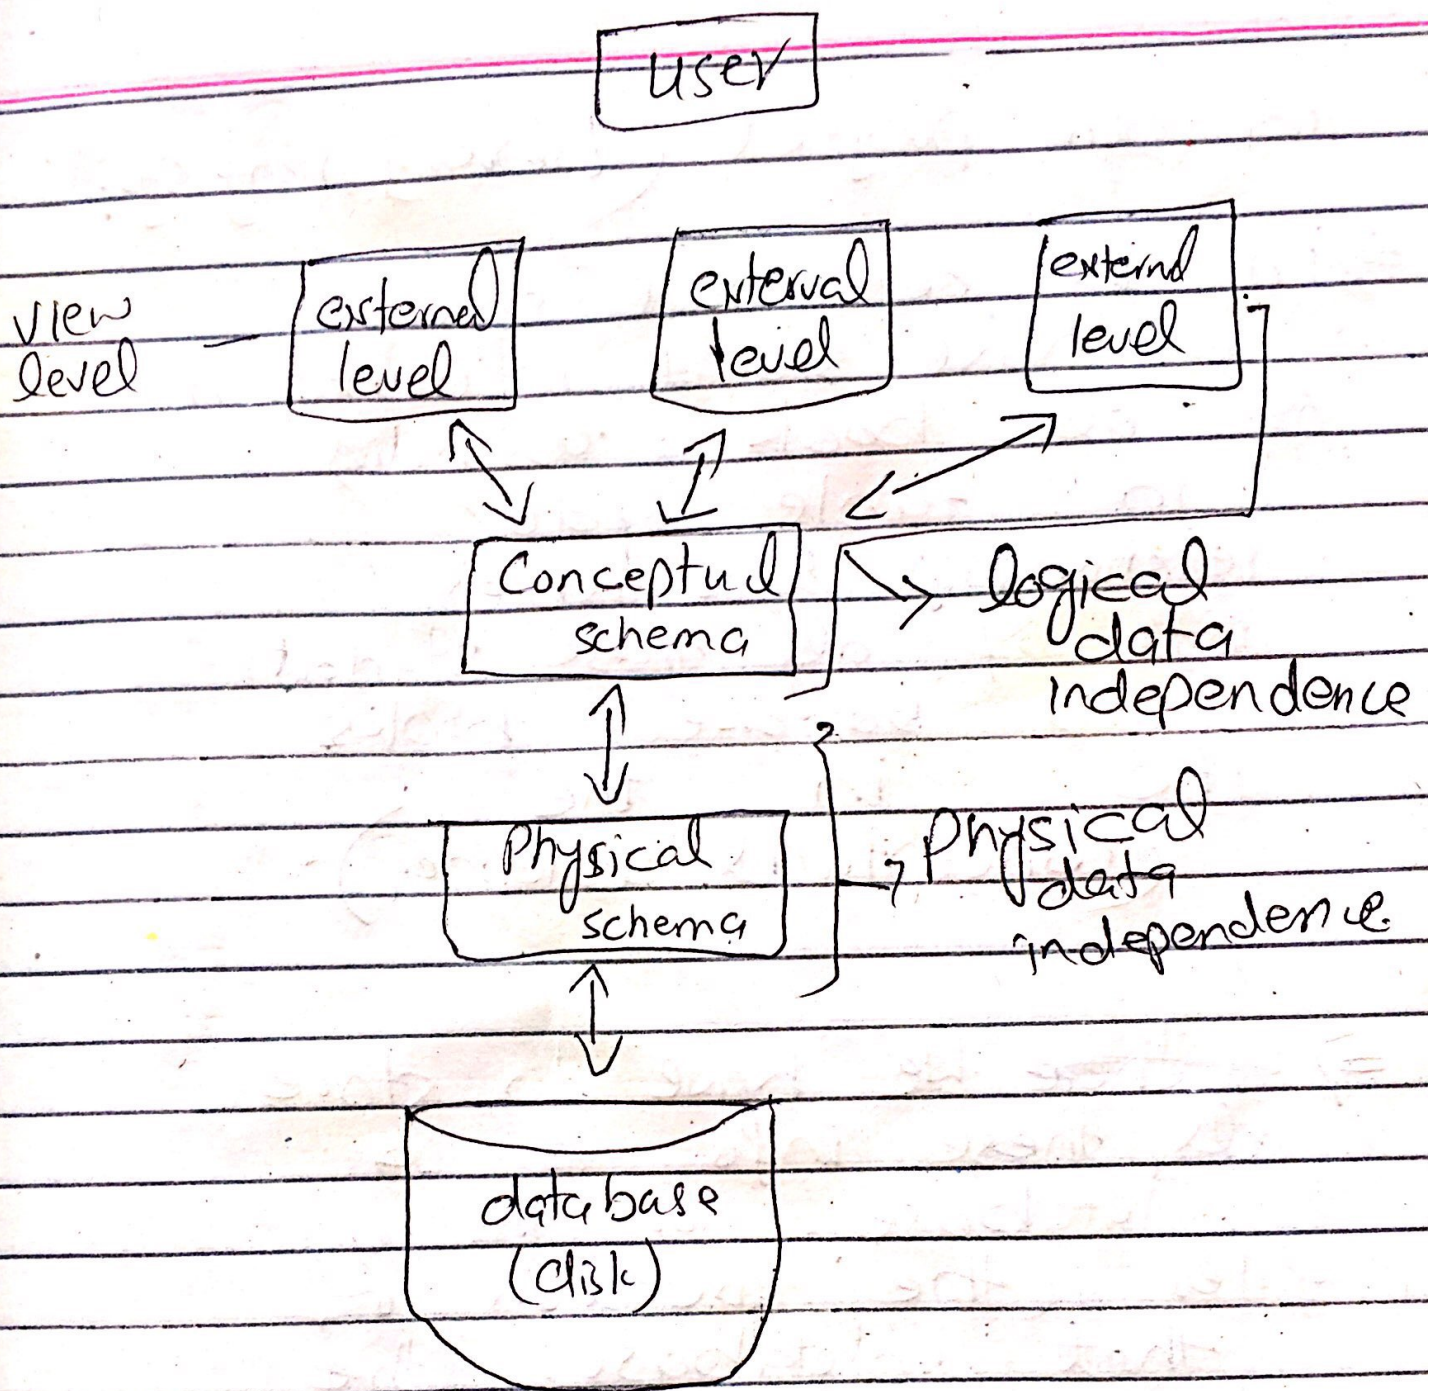 user
view
level
external
level
external
level
external
level
Conceptual
schema
logical
data
independence
Physical
schema
physical
data
independence.
database
(disk)